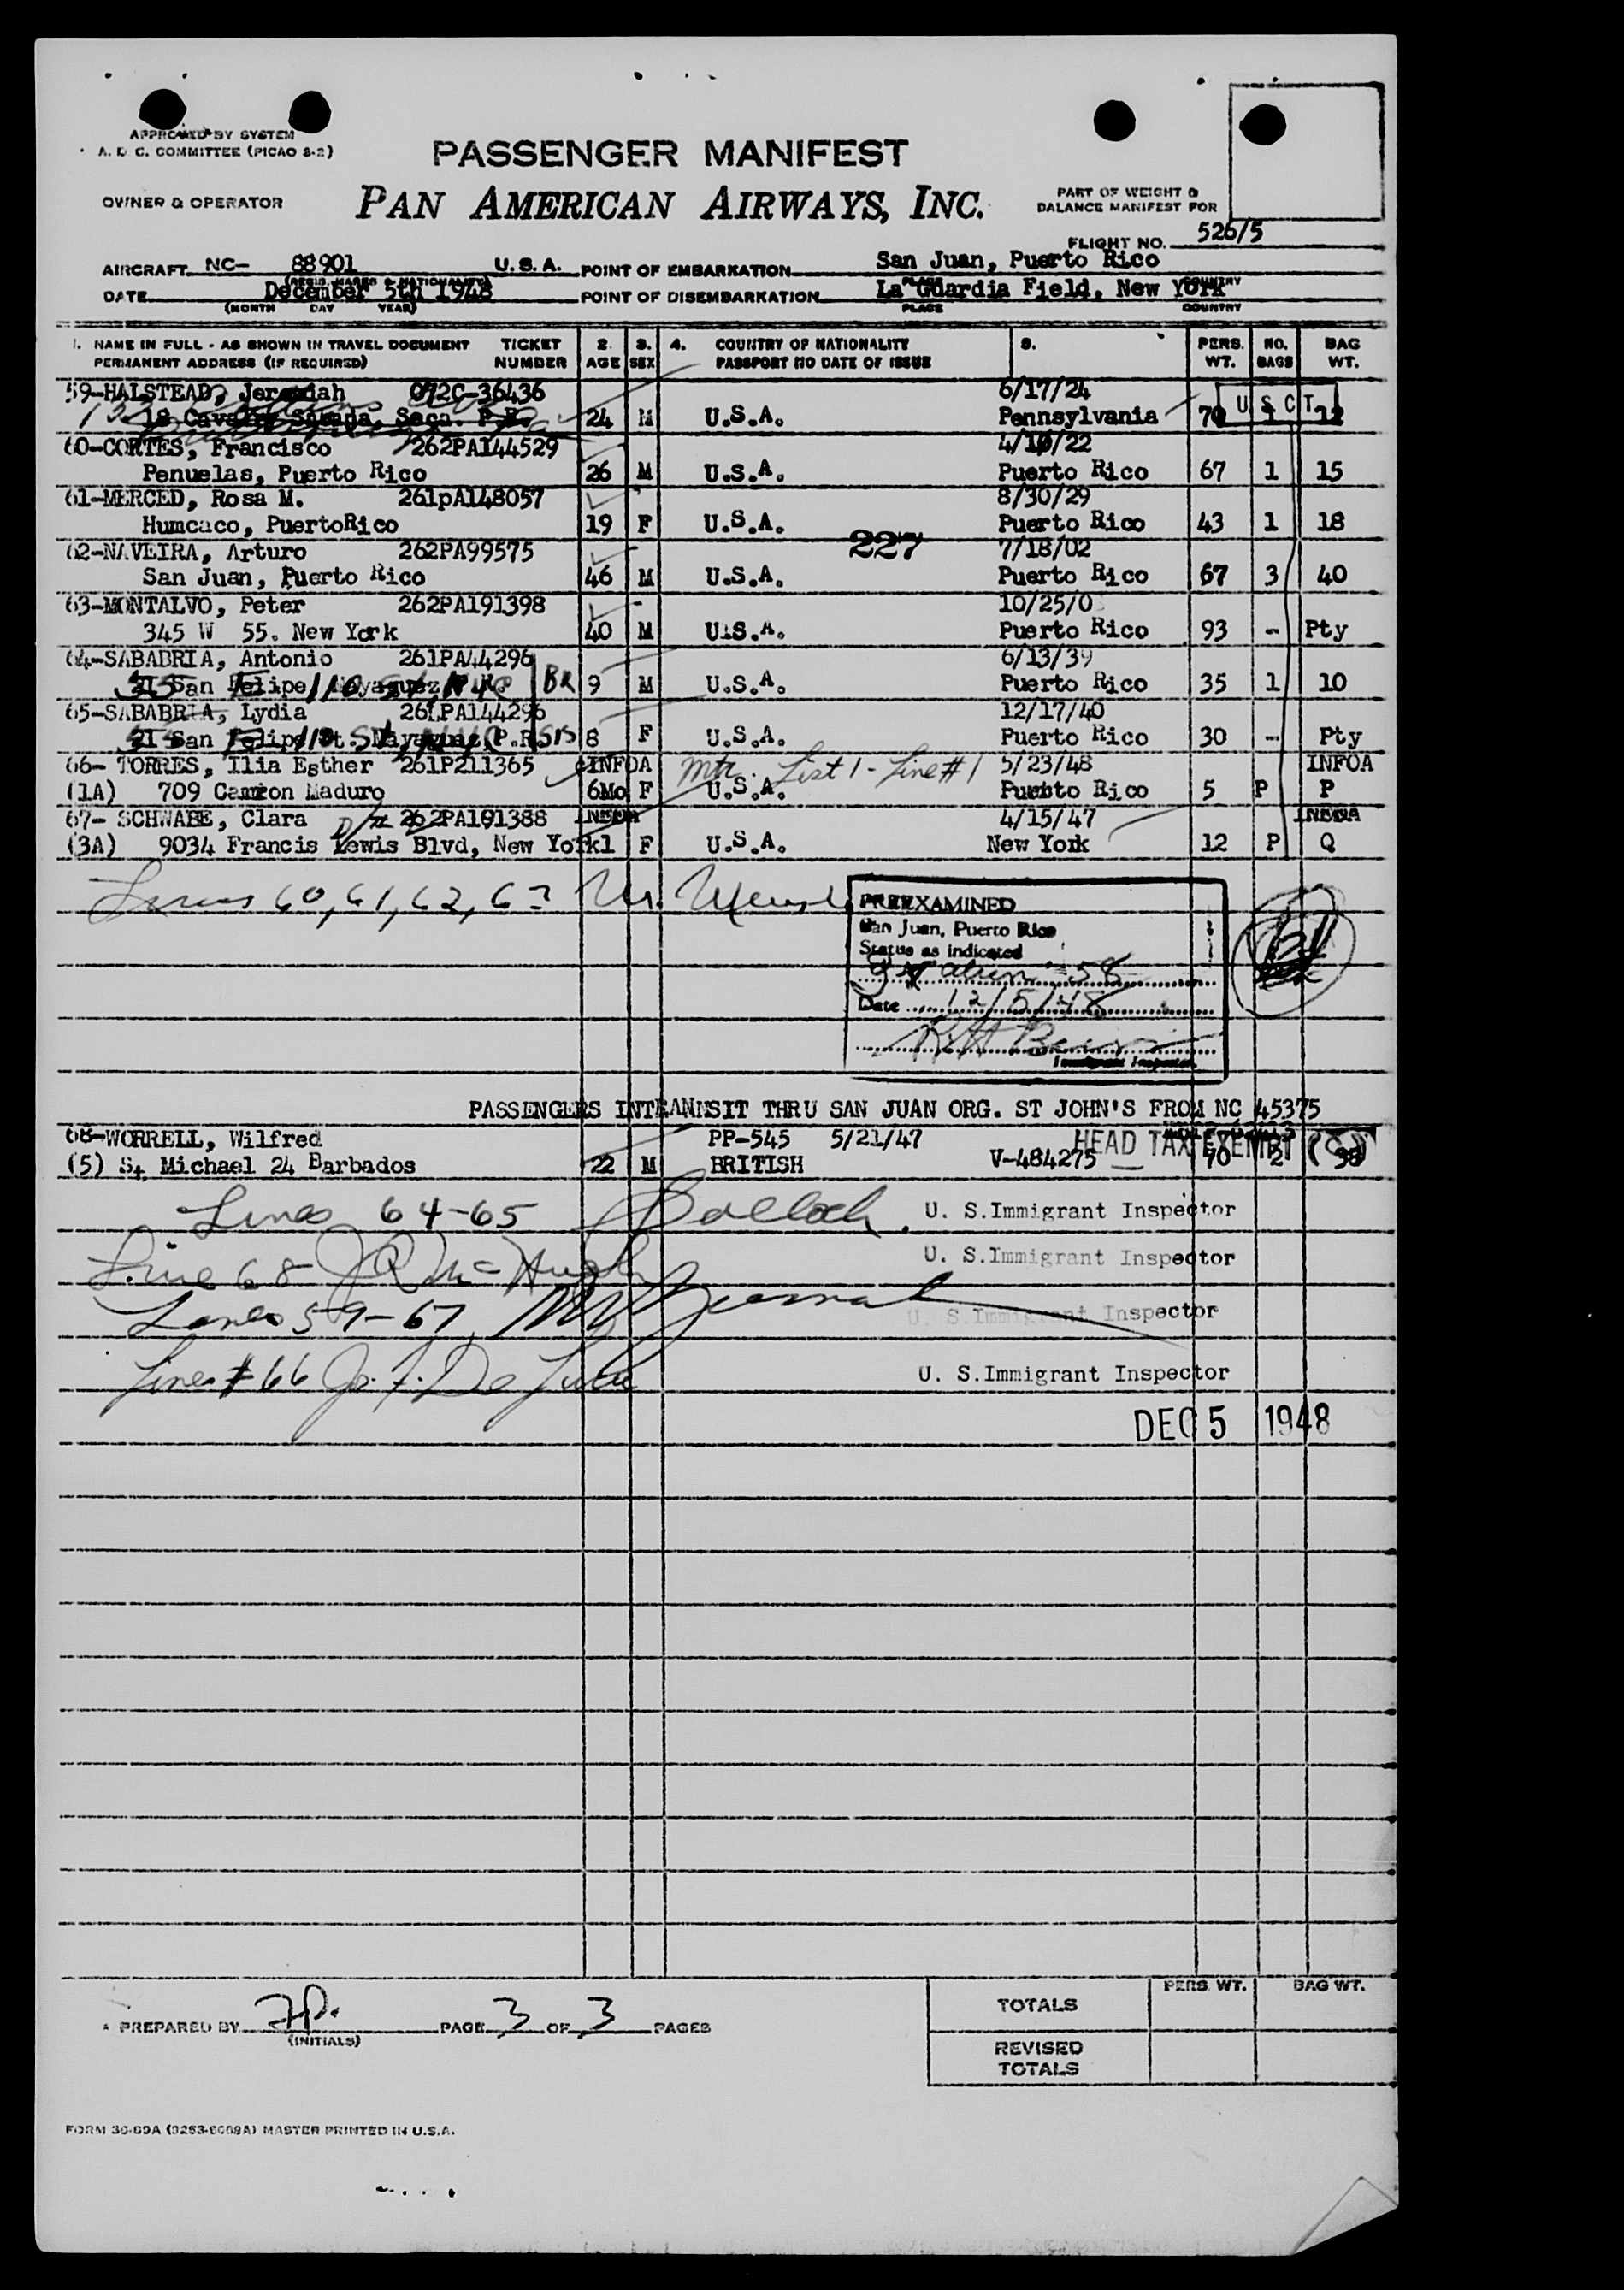 APPROVED BY SYSTEM
A. D. C. COMMITTEE (PICAO 8-2)
PASSENGER MANIFEST
OWNER & OPERATOR
PAN AMERICAN AIRWAYS, INC.
PART OF WEIGHT &
BALANCE MANIFEST FOR
FLIGHT NO. 526/5
AIRCRAFT NC- 88901 U.S.A. POINT OF EMBARKATION San Juan, Puerto Rico
(REGIS. MARKS & NATIONALITY) PLACE COUNTRY
DATE December 5th 1948 POINT OF DISEMBARKATION La Guardia Field, New York
(MONTH DAY YEAR) PLACE COUNTRY
1. NAME IN FULL - AS SHOWN IN TRAVEL DOCUMENT TICKET 2. 3. 4. COUNTRY OF NATIONALITY 5. PERS. NO. BAG
PERMANENT ADDRESS (IF REQUIRED) NUMBER AGE SEX PASSPORT NO DATE OF ISSUE WT. BAGS WT.
59-HALSTEAD, Jeremiah 092C-36436 6/17/24
24 M U.S.A. Pennsylvania 70 1 12
U S C T
60-CORTES, Francisco 262PA144529 4/10/22
Penuelas, Puerto Rico 26 M U.S.A. Puerto Rico 67 1 15
61-MERCED, Rosa M. 261pA148057 8/30/29
Humcaco, PuertoRico 19 F U.S.A. Puerto Rico 43 1 18
227
62-NAVEIRA, Arturo 262PA99575 7/18/02
San Juan, Puerto Rico 46 M U.S.A. Puerto Rico 67 3 40
63-MONTALVO, Peter 262PA191398 10/25/0
345 W 55. New York 40 M U.S.A. Puerto Rico 93 - Pty
64-SABABRIA, Antonio 261PA44296 6/13/39
San Felipe Mayaguez BR 9 M U.S.A. Puerto Rico 35 1 10
65-SABABRIA, Lydia 261PA144296 12/17/40
San Felipe St. Mayaguez, P.R. SIS 8 F U.S.A. Puerto Rico 30 - Pty
66- TORRES, Ilia Esther 261P211365 INFOA Mtr. List 1 - Line #1 5/23/48 INFOA
(1A) 709 Camron Maduro 6Mo F U.S.A. Puerto Rico 5 P P
67- SCHWABE, Clara 262PA191388 4/15/47
(3A) 9034 Francis Lewis Blvd, New York1 F U.S.A. New York 12 P Q
Lines 60, 61, 62, 63
PREEXAMINED
San Juan, Puerto Rico
Status as indicated
58
Date 12/5/48
Immigrant Inspector
PASSENGERS INTRANNSIT THRU SAN JUAN ORG. ST JOHN'S FROM NC 45375
68-WORRELL, Wilfred PP-545 5/21/47 HEAD TAX EXEMPT
(5) St Michael 24 Barbados 22 M BRITISH V-484275 70 2 38
Lines 64-65 U. S.Immigrant Inspector
Line 68 J R McHugh U. S.Immigrant Inspector
Lines 59-67, U. S.Immigrant Inspector
Line # 66 U. S.Immigrant Inspector
DEC 5 1948
PREPARED BY PAGE 3 OF 3 PAGES
(INITIALS)
PERS. WT. BAG WT.
TOTALS
REVISED
TOTALS
MASTER PRINTED IN U.S.A.